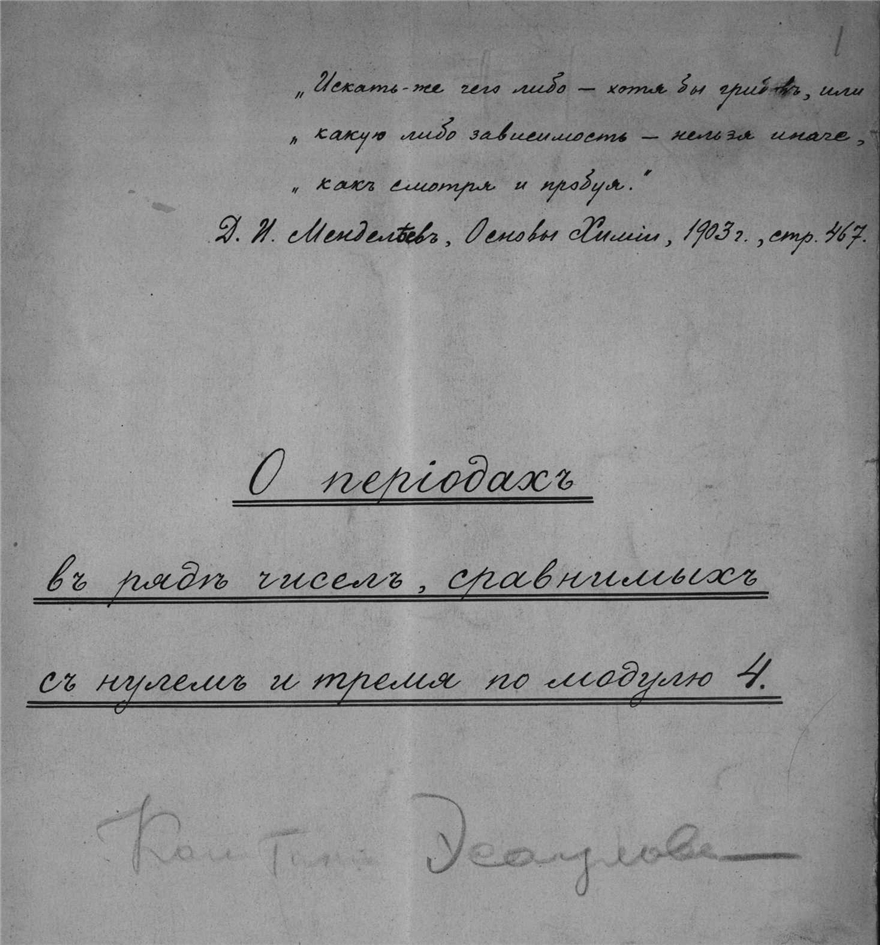 1
„Искать-же чего либо — хотя бы грибовъ, или
„какую либо зависимость — нельзя иначе,
„какъ смотря и пробуя."
Д. И. Менделѣевъ, Основы Химіи, 1903 г., стр. 467.
О періодахъ
въ рядѣ чиселъ, сравнимыхъ
съ нулемъ и тремя по модулю 4.